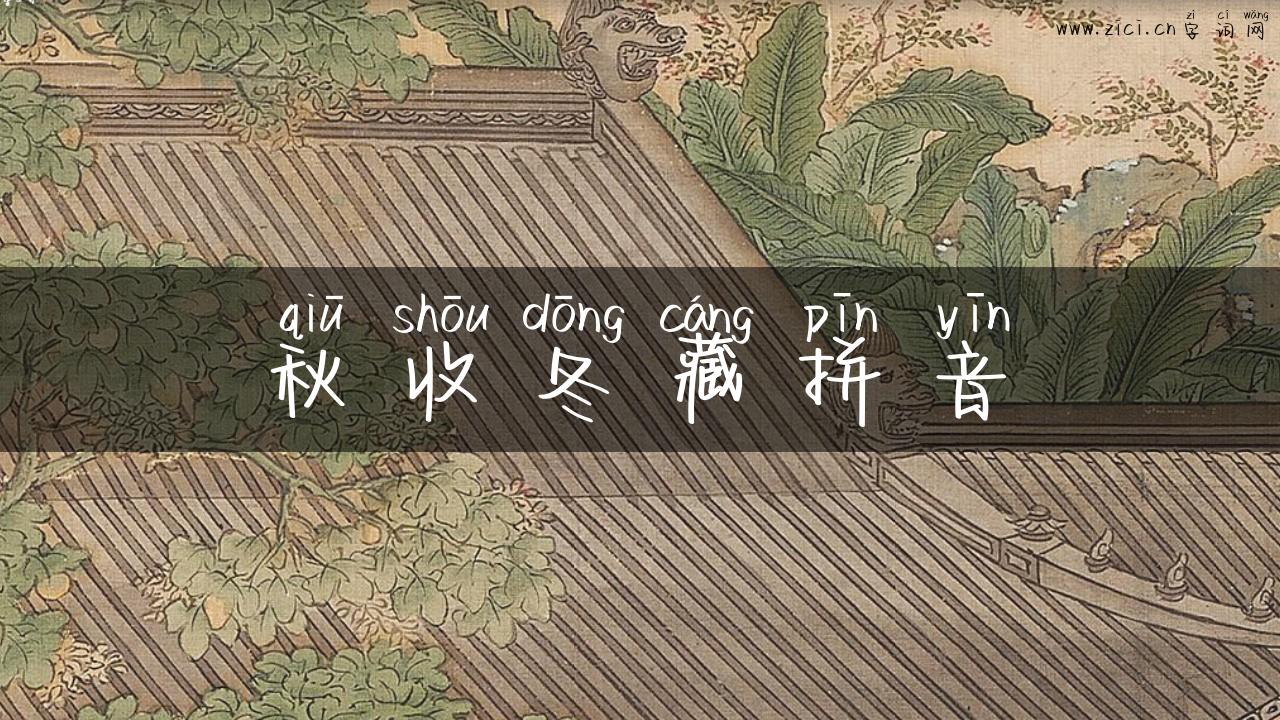 zì cí wǎng
www.zici.cn 字 词 网
qiū shōu dōng cáng pīn yīn
秋 收 冬 藏 拼 音